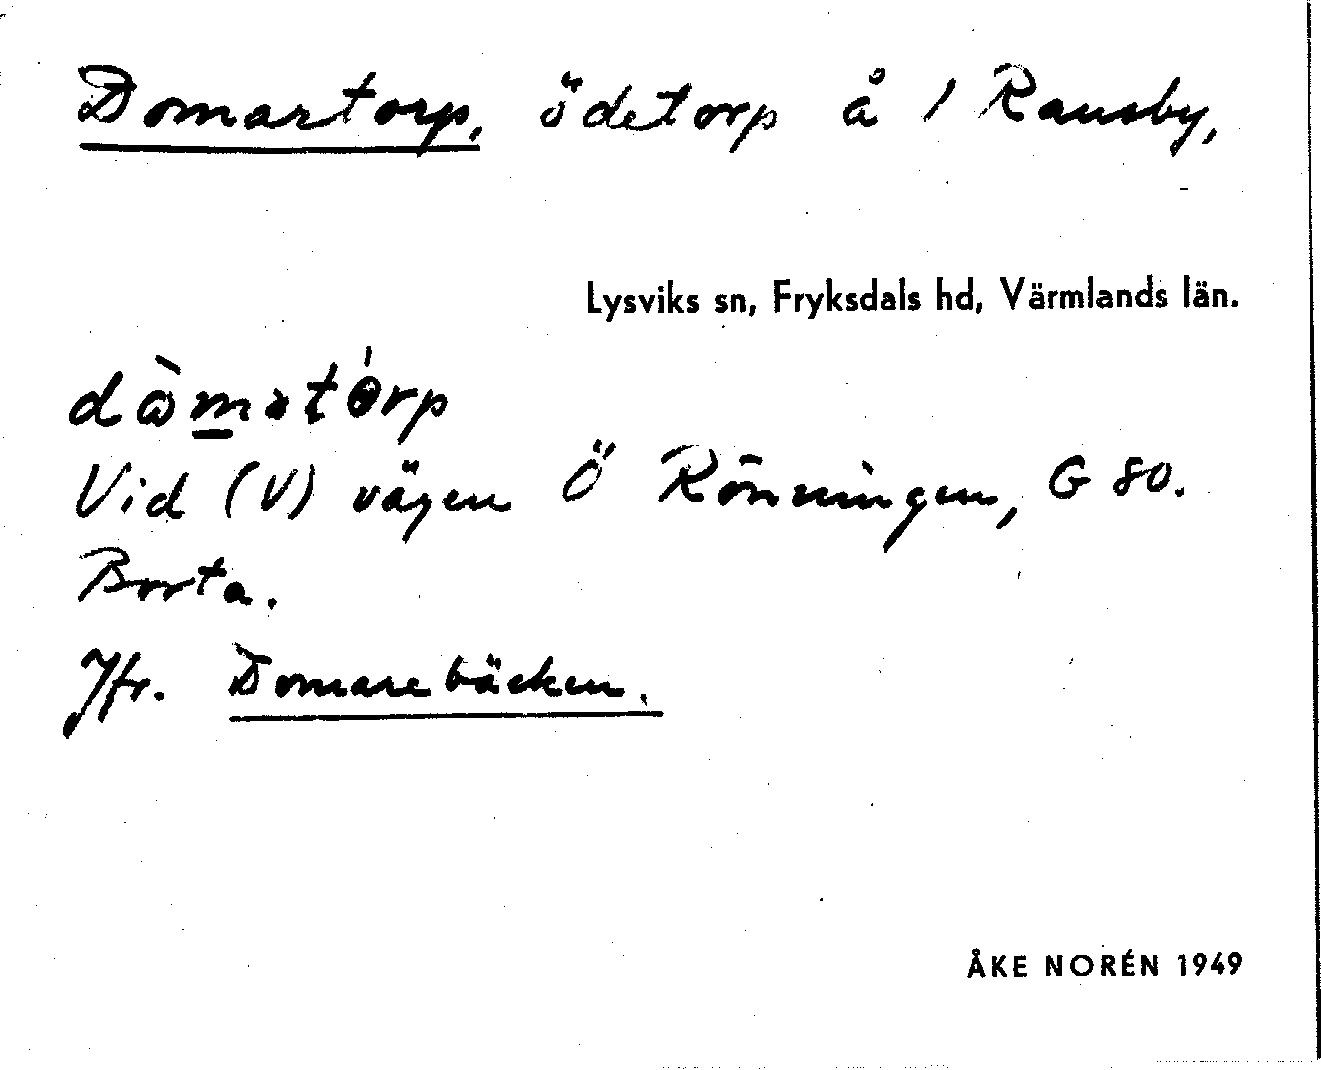 Domartorp, ödetorp å 1 Ransby,
Lysviks sn, Fryksdals hd, Värmlands län.
Vid (V) vägen Ö Rönningen, G 80.
Borta.
Jfr. Domarebäcken.
ÅKE NORÉN 1949